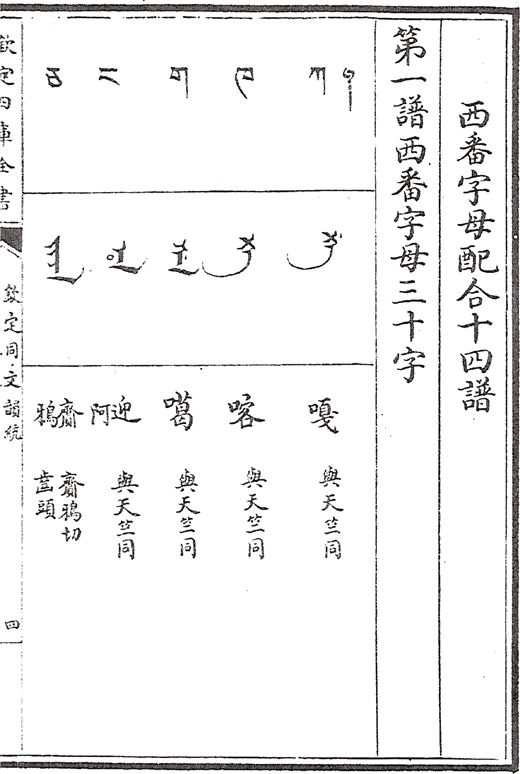 西番字母配合十四譜
第一譜西番字母三十字
ཀ 嘎 與天竺同
ཁ 喀 與天竺同
ག 噶 與天竺同
ང 迎阿 與天竺同
ཅ 齎鴉 齎鴉切 齒頭
欽定四庫全書 欽定同文韻統 四